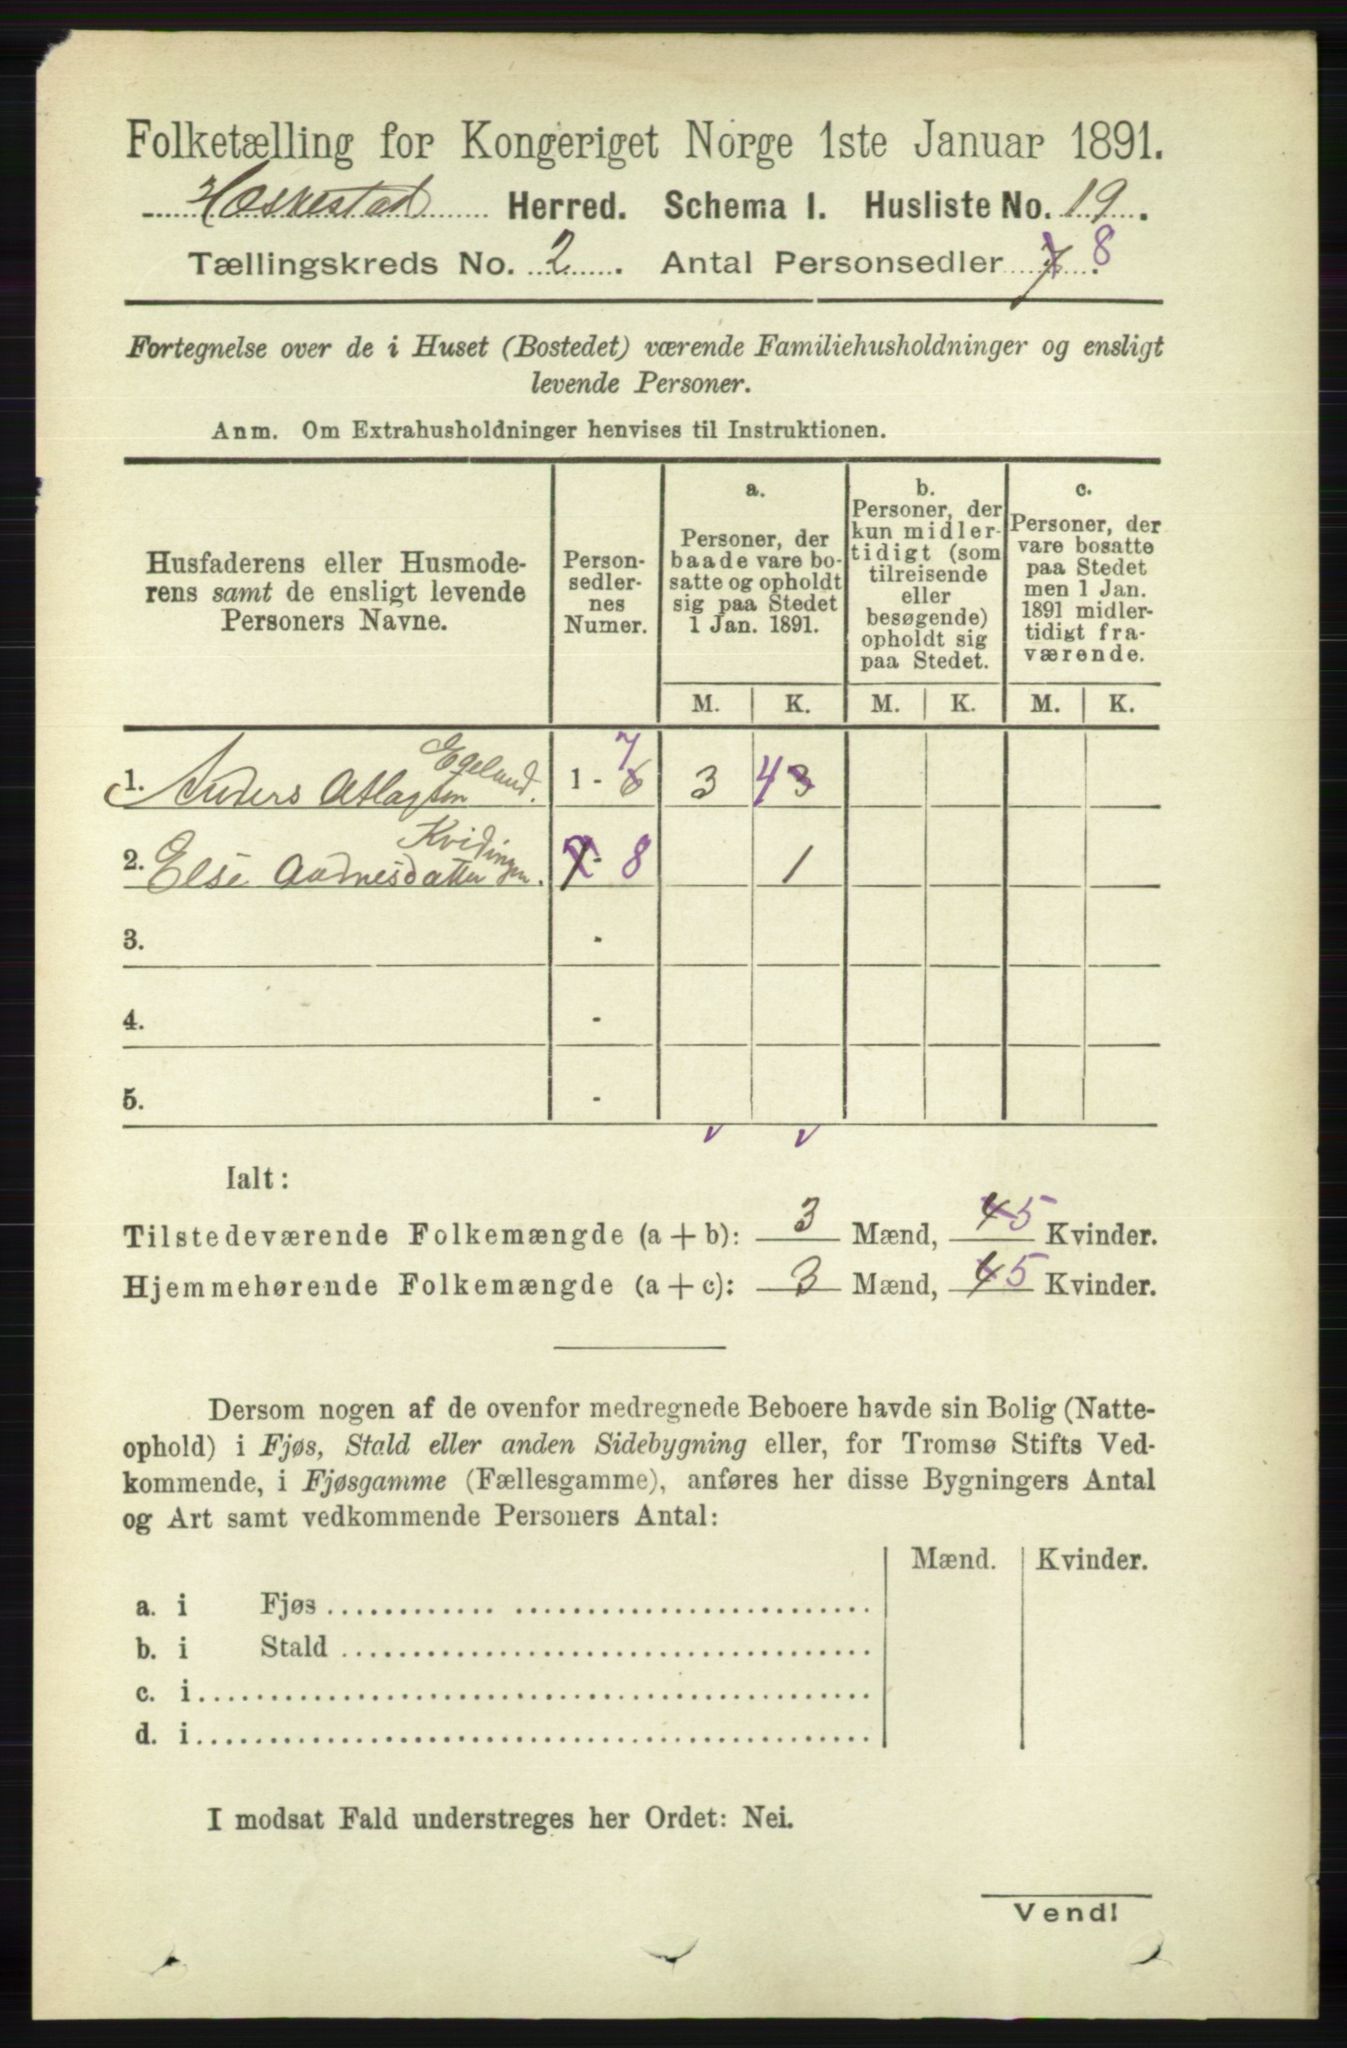 Folketælling for Kongeriget Norge 1ste Januar 1891.
Heskestad Herred. Schema I. Husliste No. 19.
Tællingskreds No. 2. Antal Personsedler 7 8.
Fortegnelse over de i Huset (Bostedet) værende Familiehusholdninger og ensligt
levende Personer.
Anm. Om Extrahusholdninger henvises til Instruktionen.
Husfaderens eller Husmode-
rens samt de ensligt levende
Personers Navne.
Person-
sedler-
nes
Numer.
a.
Personer, der
baade vare bo-
satte og opholdt
sig paa Stedet
1 Jan. 1891.
b.
Personer, der
kun midler-
tidigt (som
tilreisende
eller
besøgende)
opholdt sig
paa Stedet.
c.
Personer, der
vare bosatte
paa Stedet
men 1 Jan.
1891 midler-
tidigt fra-
værende.
M. K. M. K. M. K.
1. Anders Atlagsen Egeland. 1 - 6 7 3 4 3
2. Else Aadnesdatter Kvidingen. 7 - 8 1
3. -
4. -
5. -
Ialt:
Tilstedeværende Folkemængde (a + b): 3 Mænd, 4 5 Kvinder.
Hjemmehørende Folkemængde (a + c): 3 Mænd, 4 5 Kvinder.
Dersom nogen af de ovenfor medregnede Beboere havde sin Bolig (Natte-
ophold) i Fjøs, Stald eller anden Sidebygning eller, for Tromsø Stifts Ved-
kommende, i Fjøsgamme (Fællesgamme), anføres her disse Bygningers Antal
og Art samt vedkommende Personers Antal:
Mænd. Kvinder.
a. i Fjøs
b. i Stald
c. i
d. i
I modsat Fald understreges her Ordet: Nei.
Vend!